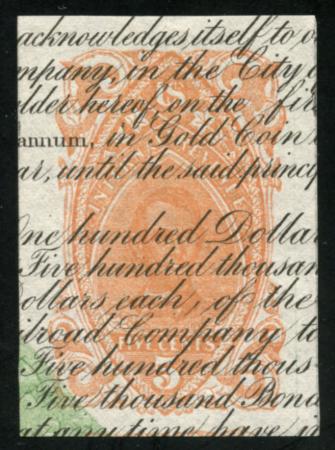 acknowledges itself to o
mpany, in the City o
lder hereof, on the fir
annum, in Gold Coin
ar, until the said princ
One hundred Dollar
Five hundred thousan
ollars each, of the
ilroad Company to
Five hundred thous
Five thousand Bond
at any time have in
U S
INTER
FIVE CENTS
5